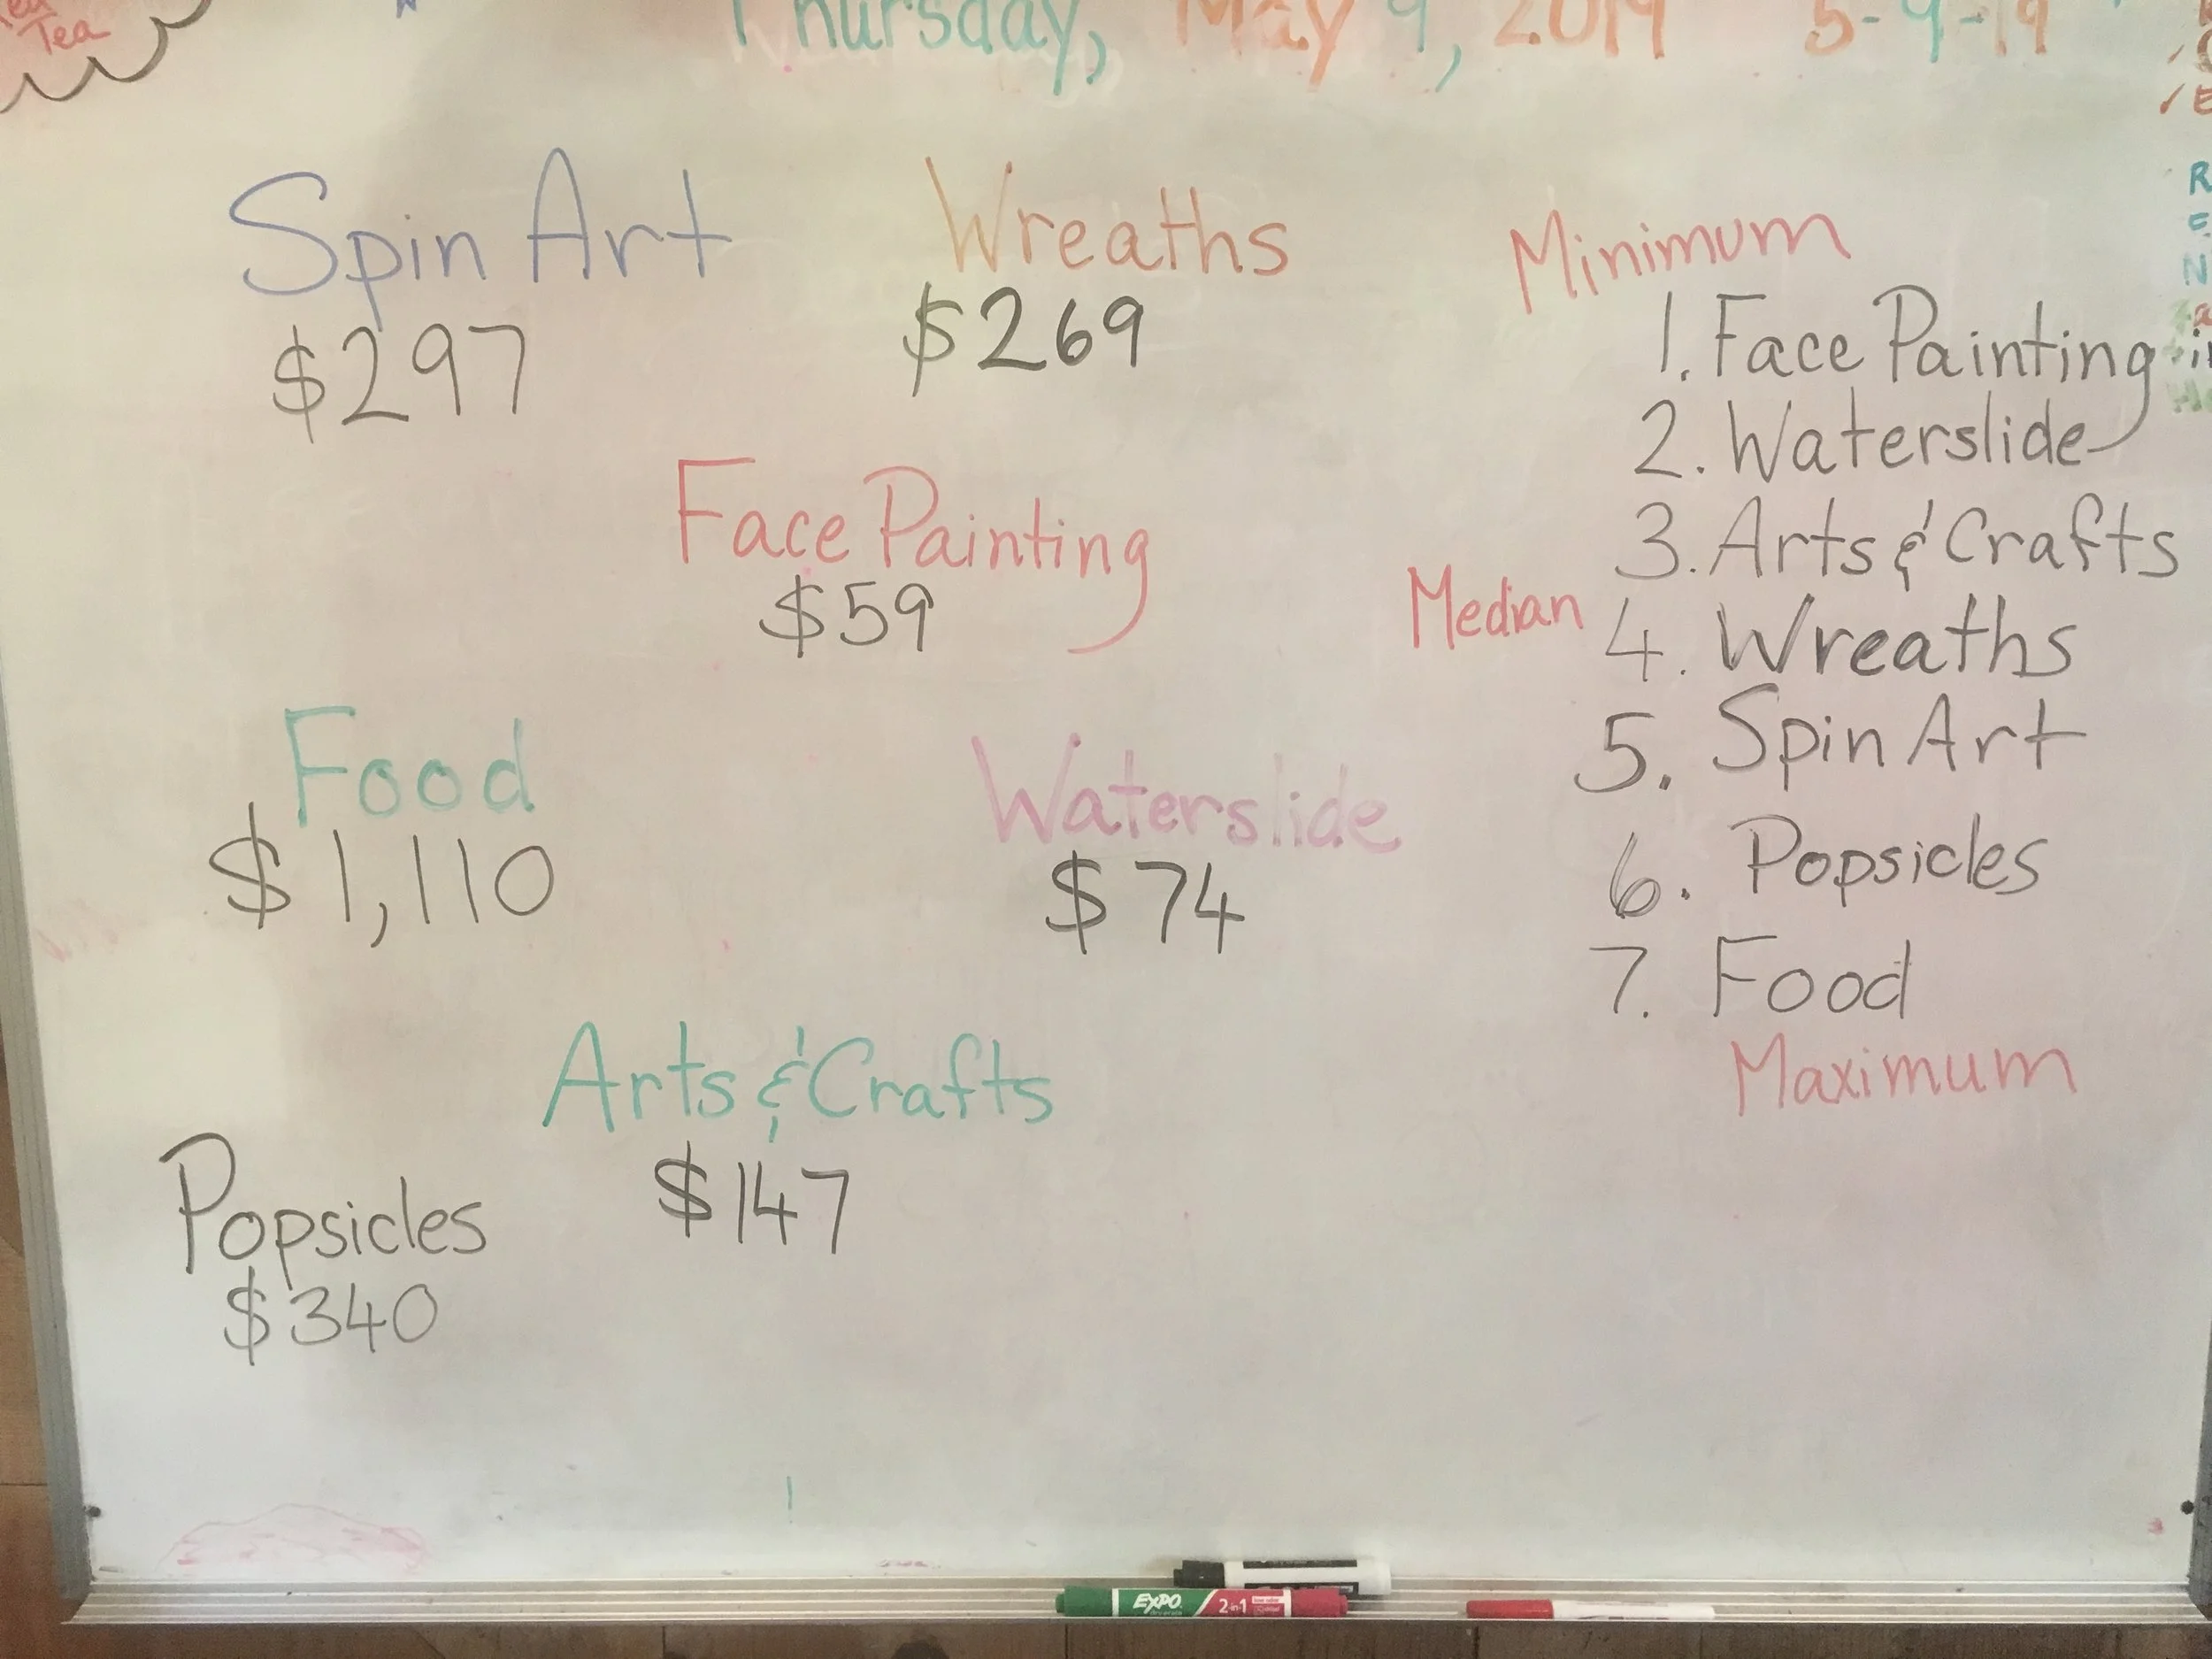 Tea
Thursday, May 9, 2019 5-9-19
Spin Art
$297
Wreaths
$269
Face Painting
$59
Food
$1,110
Waterslide
$74
Arts & Crafts
$147
Popsicles
$340
Minimum
1. Face Painting
2. Waterslide
3. Arts & Crafts
Median 4. Wreaths
5. Spin Art
6. Popsicles
7. Food
Maximum
EXPO 2-in-1